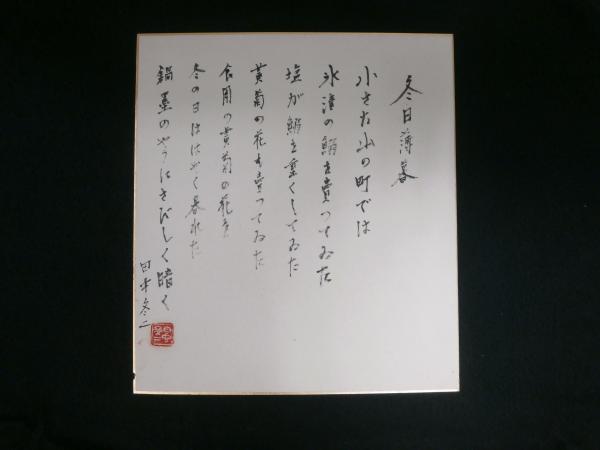 冬日薄暮
小さな山の町では
氷漬の鰯を売つてゐた
塩が鰯を重くしてゐた
黄菊の花を売つてゐた
食用の黄菊の花を
冬の日ははやく暮れた
鍋墨のやうにさびしく暗く
田中冬二